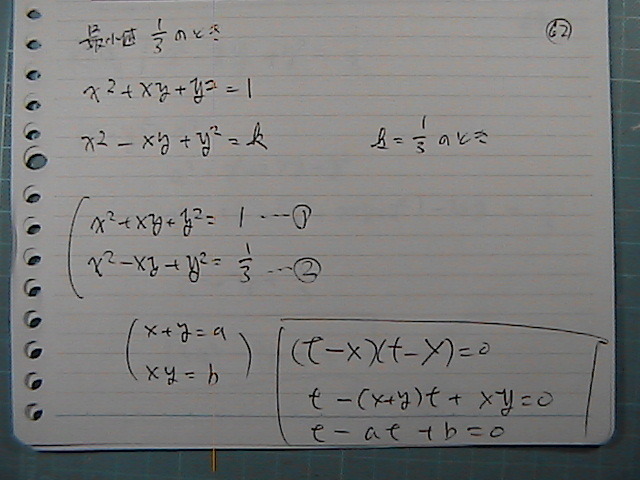 最小値 1/3 のとき
62
x²+xy+y²=1
x²-xy+y²=k
k=1/3 のとき
x²+xy+y²=1 ---①
x²-xy+y²=1/3 ---②
x+y=a
xy=b
(t-x)(t-y)=0
t-(x+y)t+xy=0
t-at+b=0